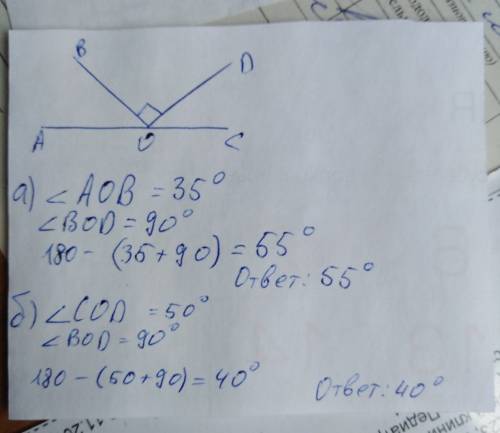 B D
A O C
а) ∠AOB = 35°
∠BOD = 90°
180 - (35 + 90) = 55°
Ответ: 55°
б) ∠COD = 50°
∠BOD = 90°
180 - (50 + 90) = 40°
Ответ: 40°